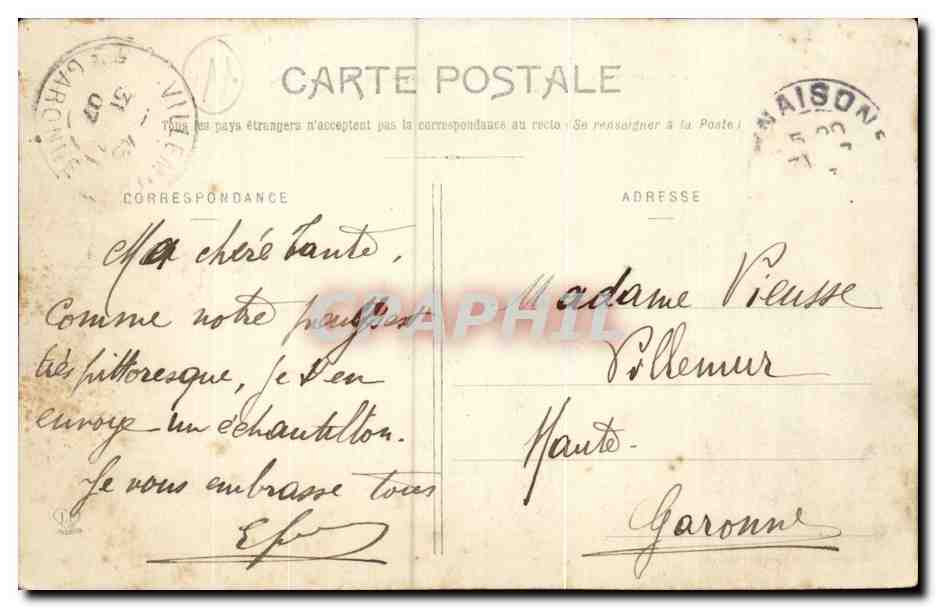 CARTE POSTALE
Tous les pays étrangers n'acceptent pas la correspondance au recto (Se renseigner à la Poste)
CORRESPONDANCE
Ma chère tante,
Comme notre pays est
très pittoresque, je t'en
envoye un échantillon.
Je vous embrasse tous
ADRESSE
Madame Vieusse
Villemur
Haute-
Garonne
VILLEM
31
07
GARONNE
NAISON
CPAPHIL